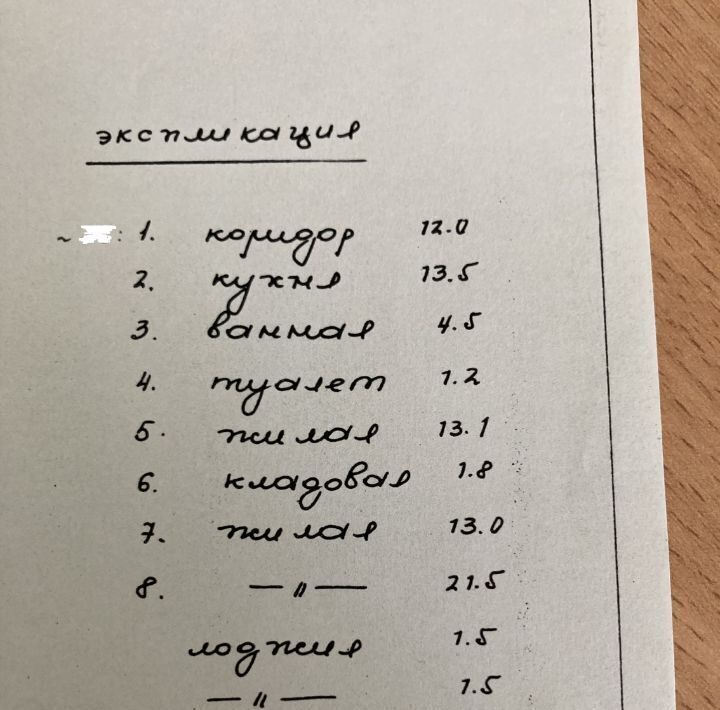 экспликация
1. коридор 12.0
2. кухня 13.5
3. ванная 4.5
4. туалет 1.2
5. жилая 13.1
6. кладовая 1.8
7. жилая 13.0
8. —〃— 21.5
лоджия 1.5
—〃— 1.5